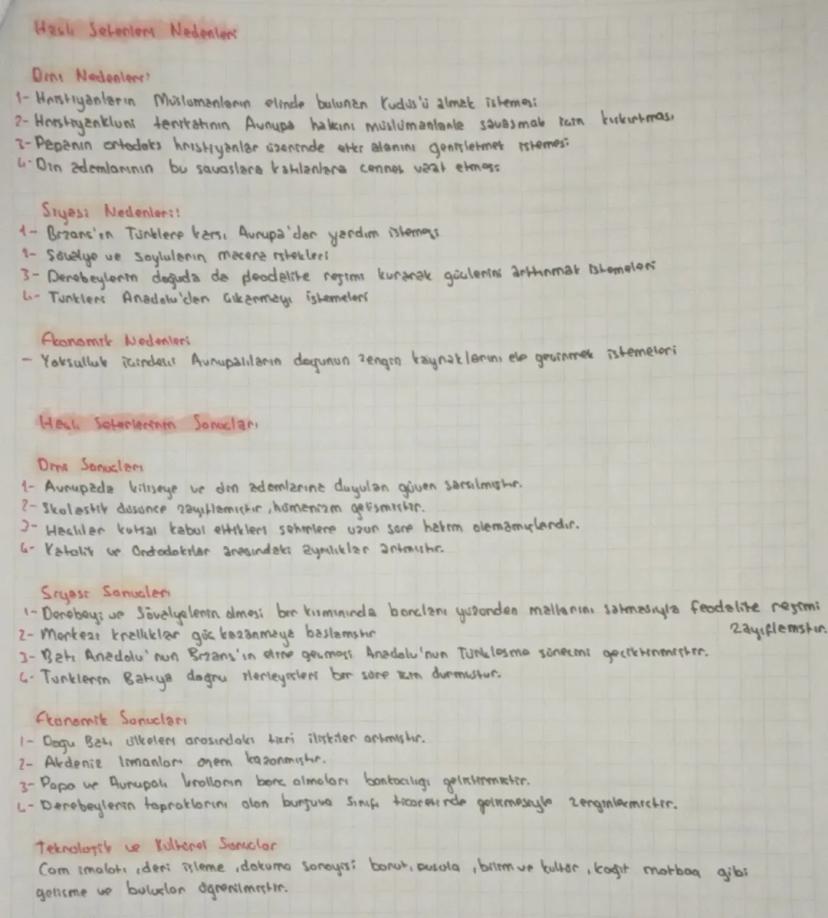 Haçlı Seferleri Nedenleri
Dini Nedenleri:
1- Hristiyanların Müslümanların elinde bulunan Kudüs'ü almak istemesi
2- Hristiyan Kluni tarikatının Avrupa halkını müslümanlarla savaşmak için kışkırtması
3- Papanın ortodoks hristiyanlar üzerinde etki alanını genişletmek istemesi
4- Din adamlarının bu savaşlara katılanlara cennet vaat etmesi
Siyasi Nedenleri:
1- Bizans'ın Türklere karşı Avrupa'dan yardım istemesi
2- Şövalye ve Soyluların macera istekleri
3- Derebeylerin doğuda da feodalite rejimi kurarak güçlerini arttırmak istemeleri
4- Türkleri Anadolu'dan Çıkarmayı istemeleri
Ekonomik Nedenleri
- Yoksulluk içindeki Avrupalıların doğunun zengin kaynaklarını ele geçirmek istemeleri
Haçlı Seferlerinin Sonuçları
Dini Sonuçları
1- Avrupada kiliseye ve din adamlarına duyulan güven sarsılmıştır.
2- Skolastik düşünce zayıflamıştır, hümanizm gelişmiştir.
3- Haçlılar kutsal kabul ettikleri şehirlere uzun süre hakim olamamışlardır.
4- Katolik ve Ortodokslar arasındaki ayrılıklar artmıştır.
Siyasi Sonuçları
1- Derebeyi ve Şövalyelerin ölmesi bir kısmınında borçları yüzünden mallarını satmasıyla feodalite rejimi
zayıflamıştır.
2- Merkezi krallıklar güç kazanmaya başlamıştır
3- Batı Anadolu'nun Bizans'ın eline geçmesi Anadolu'nun Türkleşme sürecini geciktirmiştir.
4- Türklerin Batıya doğru ilerleyişleri bir süre için durmuştur.
Ekonomik Sonuçları
1- Doğu Batı ülkeleri arasındaki ticari ilişkiler artmıştır.
2- Akdeniz limanları önem kazanmıştır.
3- Papa ve Avrupalı kralların borç almaları bankacılığı geliştirmiştir.
4- Derebeylerin topraklarını alan burjuva sınıfı ticaretinde gelişmesiyle zenginleşmiştir.
Teknolojik ve Kültürel Sonuçlar
Cam imalatı, deri işleme, dokuma sanayisi barut, pusula, bilim ve kültür, kağıt matbaa gibi
gelişme ve buluşlar öğrenilmiştir.